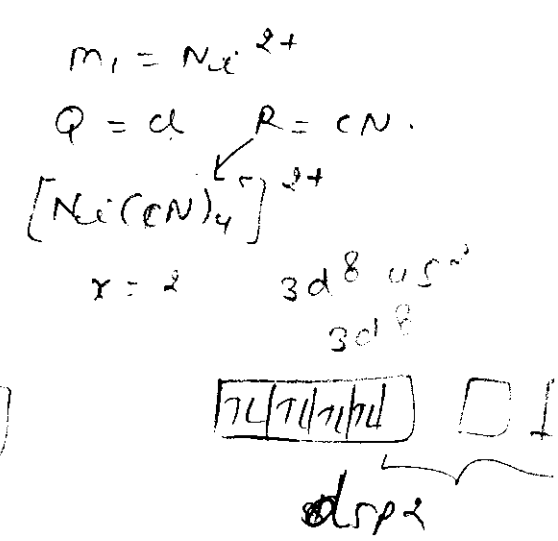 m₁ = Ni²⁺
Q = Cl R = CN.
[Ni(CN)₄]²⁺
x = 2 3d⁸ 4s
3d⁸
dsp2